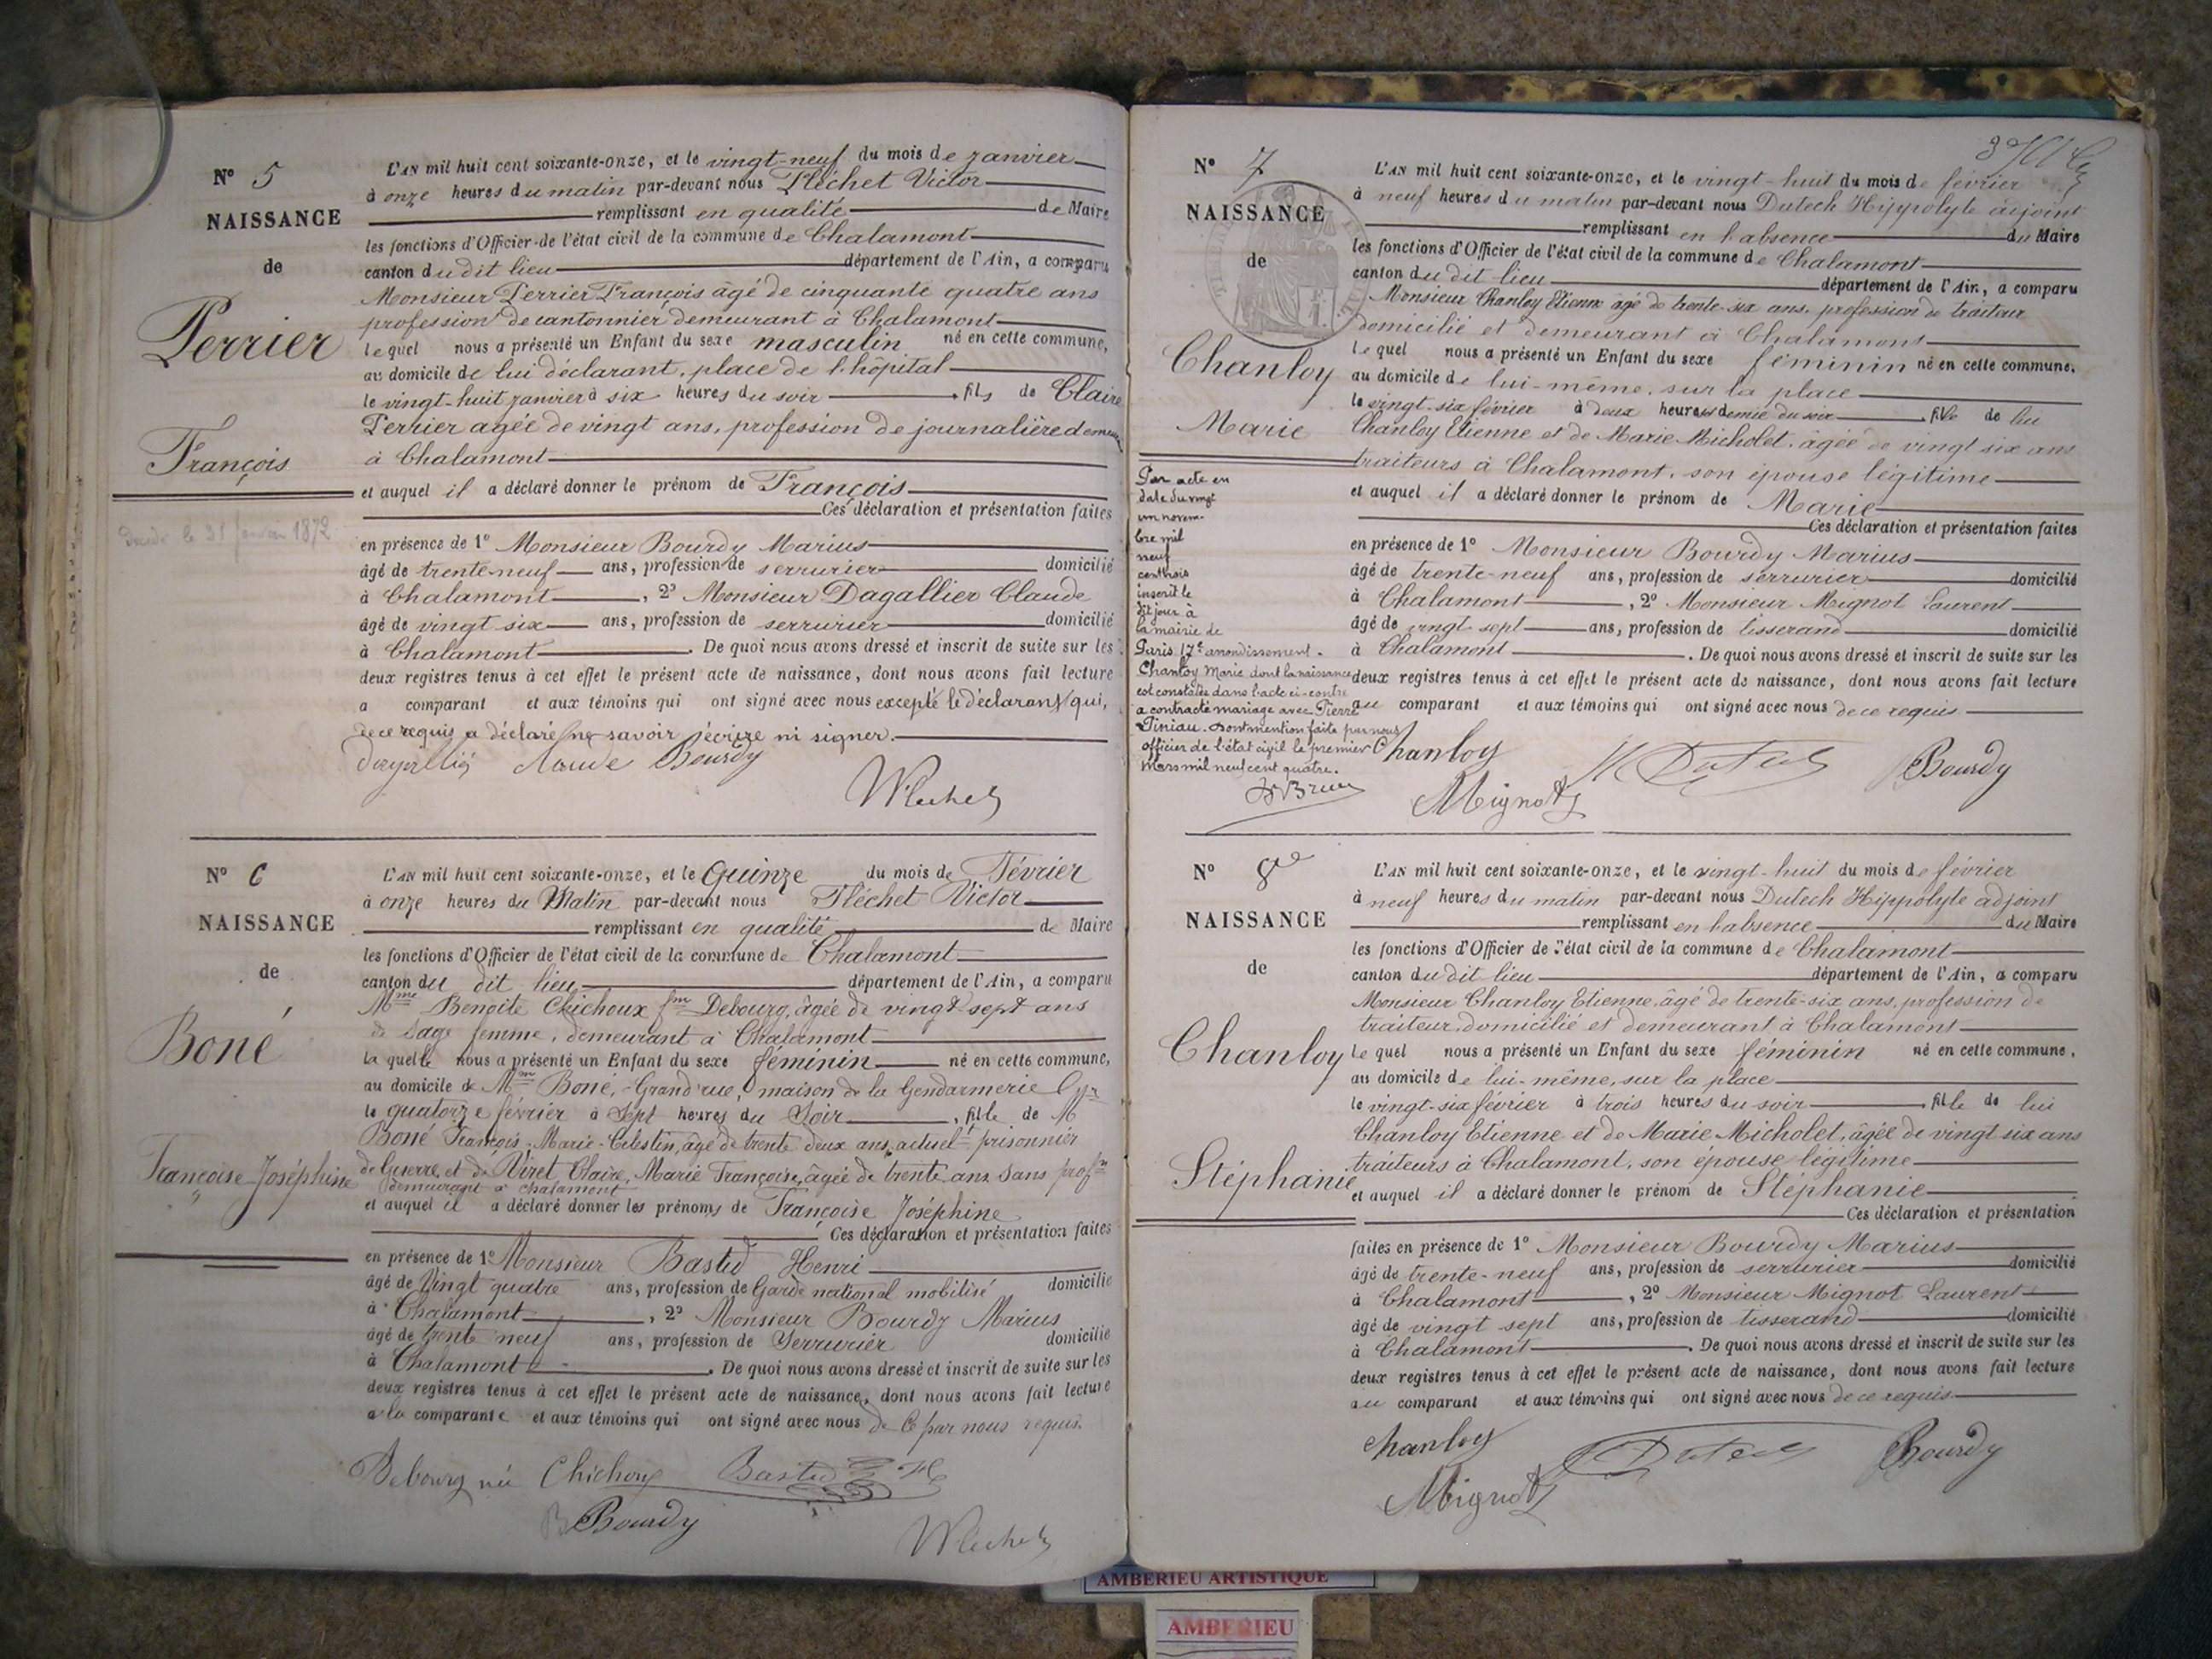 N° 5
NAISSANCE
de
Perrier
François
Décédé le 31 janvier 1872
L'AN mil huit cent soixante-onze, et le vingt-neuf du mois de janvier
à onze heures du matin par-devant nous Fléchet Victor
remplissant en qualité de Maire
les fonctions d'Officier de l'état civil de la commune de Chalamont
canton du dit lieu département de l'Ain, a comparu
Monsieur Perrier François âgé de cinquante quatre ans
profession de cantonnier demeurant à Chalamont
lequel nous a présenté un Enfant du sexe masculin né en cette commune,
au domicile de lui déclarant, place de l'hôpital
le vingt-huit janvier à six heures du soir fils de Claire
Perrier agée de vingt ans, profession de journalière
à Chalamont
et auquel il a déclaré donner le prénom de François
Ces déclaration et présentation faites
en présence de 1° Monsieur Bourdy Marius
âgé de trente-neuf ans, profession de serrurier domicilié
à Chalamont, 2° Monsieur Dagallier Claude
âgé de vingt six ans, profession de serrurier domicilié
à Chalamont. De quoi nous avons dressé et inscrit de suite sur les
deux registres tenus à cet effet le présent acte de naissance, dont nous avons fait lecture
a comparant et aux témoins qui ont signé avec nous excepté le déclarant qui,
de ce requis a déclaré ne savoir écrire ni signer.
Claude Bourdy
N° 6
NAISSANCE
de
Boné
Françoise Joséphine
L'AN mil huit cent soixante-onze, et le Quinze du mois de Février
à onze heures du Matin par-devant nous Fléchet Victor
remplissant en qualité de Maire
les fonctions d'Officier de l'état civil de la commune de Chalamont
canton du dit lieu département de l'Ain, a comparu
Mme Benoite Chichoux fme Debourg, âgée de vingt-sept ans
de sage femme, demeurant à Chalamont
la quelle nous a présenté un Enfant du sexe féminin né en cette commune,
au domicile de Mme Boné, Grand'rue, maison de la Gendarmerie
le quatorze février à Sept heures du Soir, fille de M
Boné François-Marie-Celestin, âgé de trente deux ans, actuelt prisonnier
de Guerre et de Viret Claire, Marie Françoise, âgée de trente ans sans profon
demeurant à Chalamont
et auquel il a déclaré donner les prénoms de Françoise Joséphine
Ces déclaration et présentation faites
en présence de 1° Monsieur Bastid Henri
âgé de Vingt quatre ans, profession de Garde national mobilisé domicilié
à Chalamont, 2° Monsieur Bourdy Marius
âgé de trente neuf ans, profession de Serrurier domicilié
à Chalamont. De quoi nous avons dressé et inscrit de suite sur les
deux registres tenus à cet effet le présent acte de naissance, dont nous avons fait lecture
a la comparante et aux témoins qui ont signé avec nous de ce par nous requis.
Debourg née Chichoux Bastid H
Bourdy
N° 7
NAISSANCE
de
Chanloy
Marie
Par acte en
date du vingt
un novem-
bre mil
neuf
cent trois
inscrit le
dit jour à
la mairie de
Paris 17e arrondissement.
Chanloy Marie dont la naissance
est constatée dans l'acte ci-contre
a contracté mariage avec Pierre
Piniau. Dont mention faite par nous
officier de l'état civil le premier
Mars mil neuf cent quatre.
L'AN mil huit cent soixante-onze, et le vingt-huit du mois de février
à neuf heures du matin par-devant nous Dutech Hippolyte adjoint
remplissant en l'absence du Maire
les fonctions d'Officier de l'état civil de la commune de Chalamont
canton du dit lieu département de l'Ain, a comparu
Monsieur Chanloy Etienne âgé de trente-six ans, profession de traiteur
domicilié et demeurant à Chalamont
lequel nous a présenté un Enfant du sexe féminin né en cette commune.
au domicile de lui-même, sur la place
le vingt-six février à deux heures demie du soir fille de lui
Chanloy Etienne et de Marie Micholet, âgée de vingt six ans
traiteurs à Chalamont, son épouse légitime
et auquel il a déclaré donner le prénom de Marie
Ces déclaration et présentation faites
en présence de 1° Monsieur Bourdy Marius
âgé de trente-neuf ans, profession de serrurier domicilié
à Chalamont, 2° Monsieur Mignot Laurent
âgé de vingt-sept ans, profession de tisserand domicilié
à Chalamont. De quoi nous avons dressé et inscrit de suite sur les
deux registres tenus à cet effet le présent acte de naissance, dont nous avons fait lecture
au comparant et aux témoins qui ont signé avec nous de ce requis
Chanloy H Dutech Bourdy
Mignot
N° 8
NAISSANCE
de
Chanloy
Stéphanie
L'AN mil huit cent soixante-onze, et le vingt-huit du mois de février
à neuf heures du matin par-devant nous Dutech Hippolyte adjoint
remplissant en l'absence du Maire
les fonctions d'Officier de l'état civil de la commune de Chalamont
canton du dit lieu département de l'Ain, a comparu
Monsieur Chanloy Etienne, âgé de trente-six ans, profession de
traiteur, domicilié et demeurant à Chalamont
lequel nous a présenté un Enfant du sexe féminin né en cette commune,
au domicile de lui-même, sur la place
le vingt-six février à trois heures du soir fille de lui
Chanloy Etienne et de Marie Micholet, âgée de vingt six ans
traiteurs à Chalamont, son épouse légitime
et auquel il a déclaré donner le prénom de Stéphanie
Ces déclaration et présentation
faites en présence de 1° Monsieur Bourdy Marius
âgé de trente-neuf ans, profession de serrurier domicilié
à Chalamont, 2° Monsieur Mignot Laurent
âgé de vingt sept ans, profession de tisserand domicilié
à Chalamont. De quoi nous avons dressé et inscrit de suite sur les
deux registres tenus à cet effet le présent acte de naissance, dont nous avons fait lecture
au comparant et aux témoins qui ont signé avec nous de ce requis
Chanloy Dutech Bourdy
Mignot
AMBERIEU ARTISTIQUE
AMBERIEU